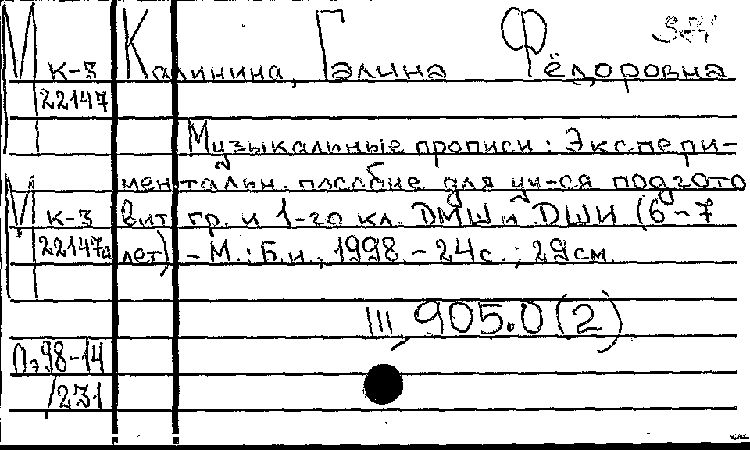 М К-3 Калинина, Галина Фёдоровна
22147
Музыкальные прописи: Экспери-
ментальн. пособие для уч-ся подгото
М К-3 вит гр. и 1-го кл. ДМШ и ДШИ (6-7
22147а лет) - М.: Б.и., 1998 - 24с.; 29см.
III, 905.0(2)
Пэ98-14
/231